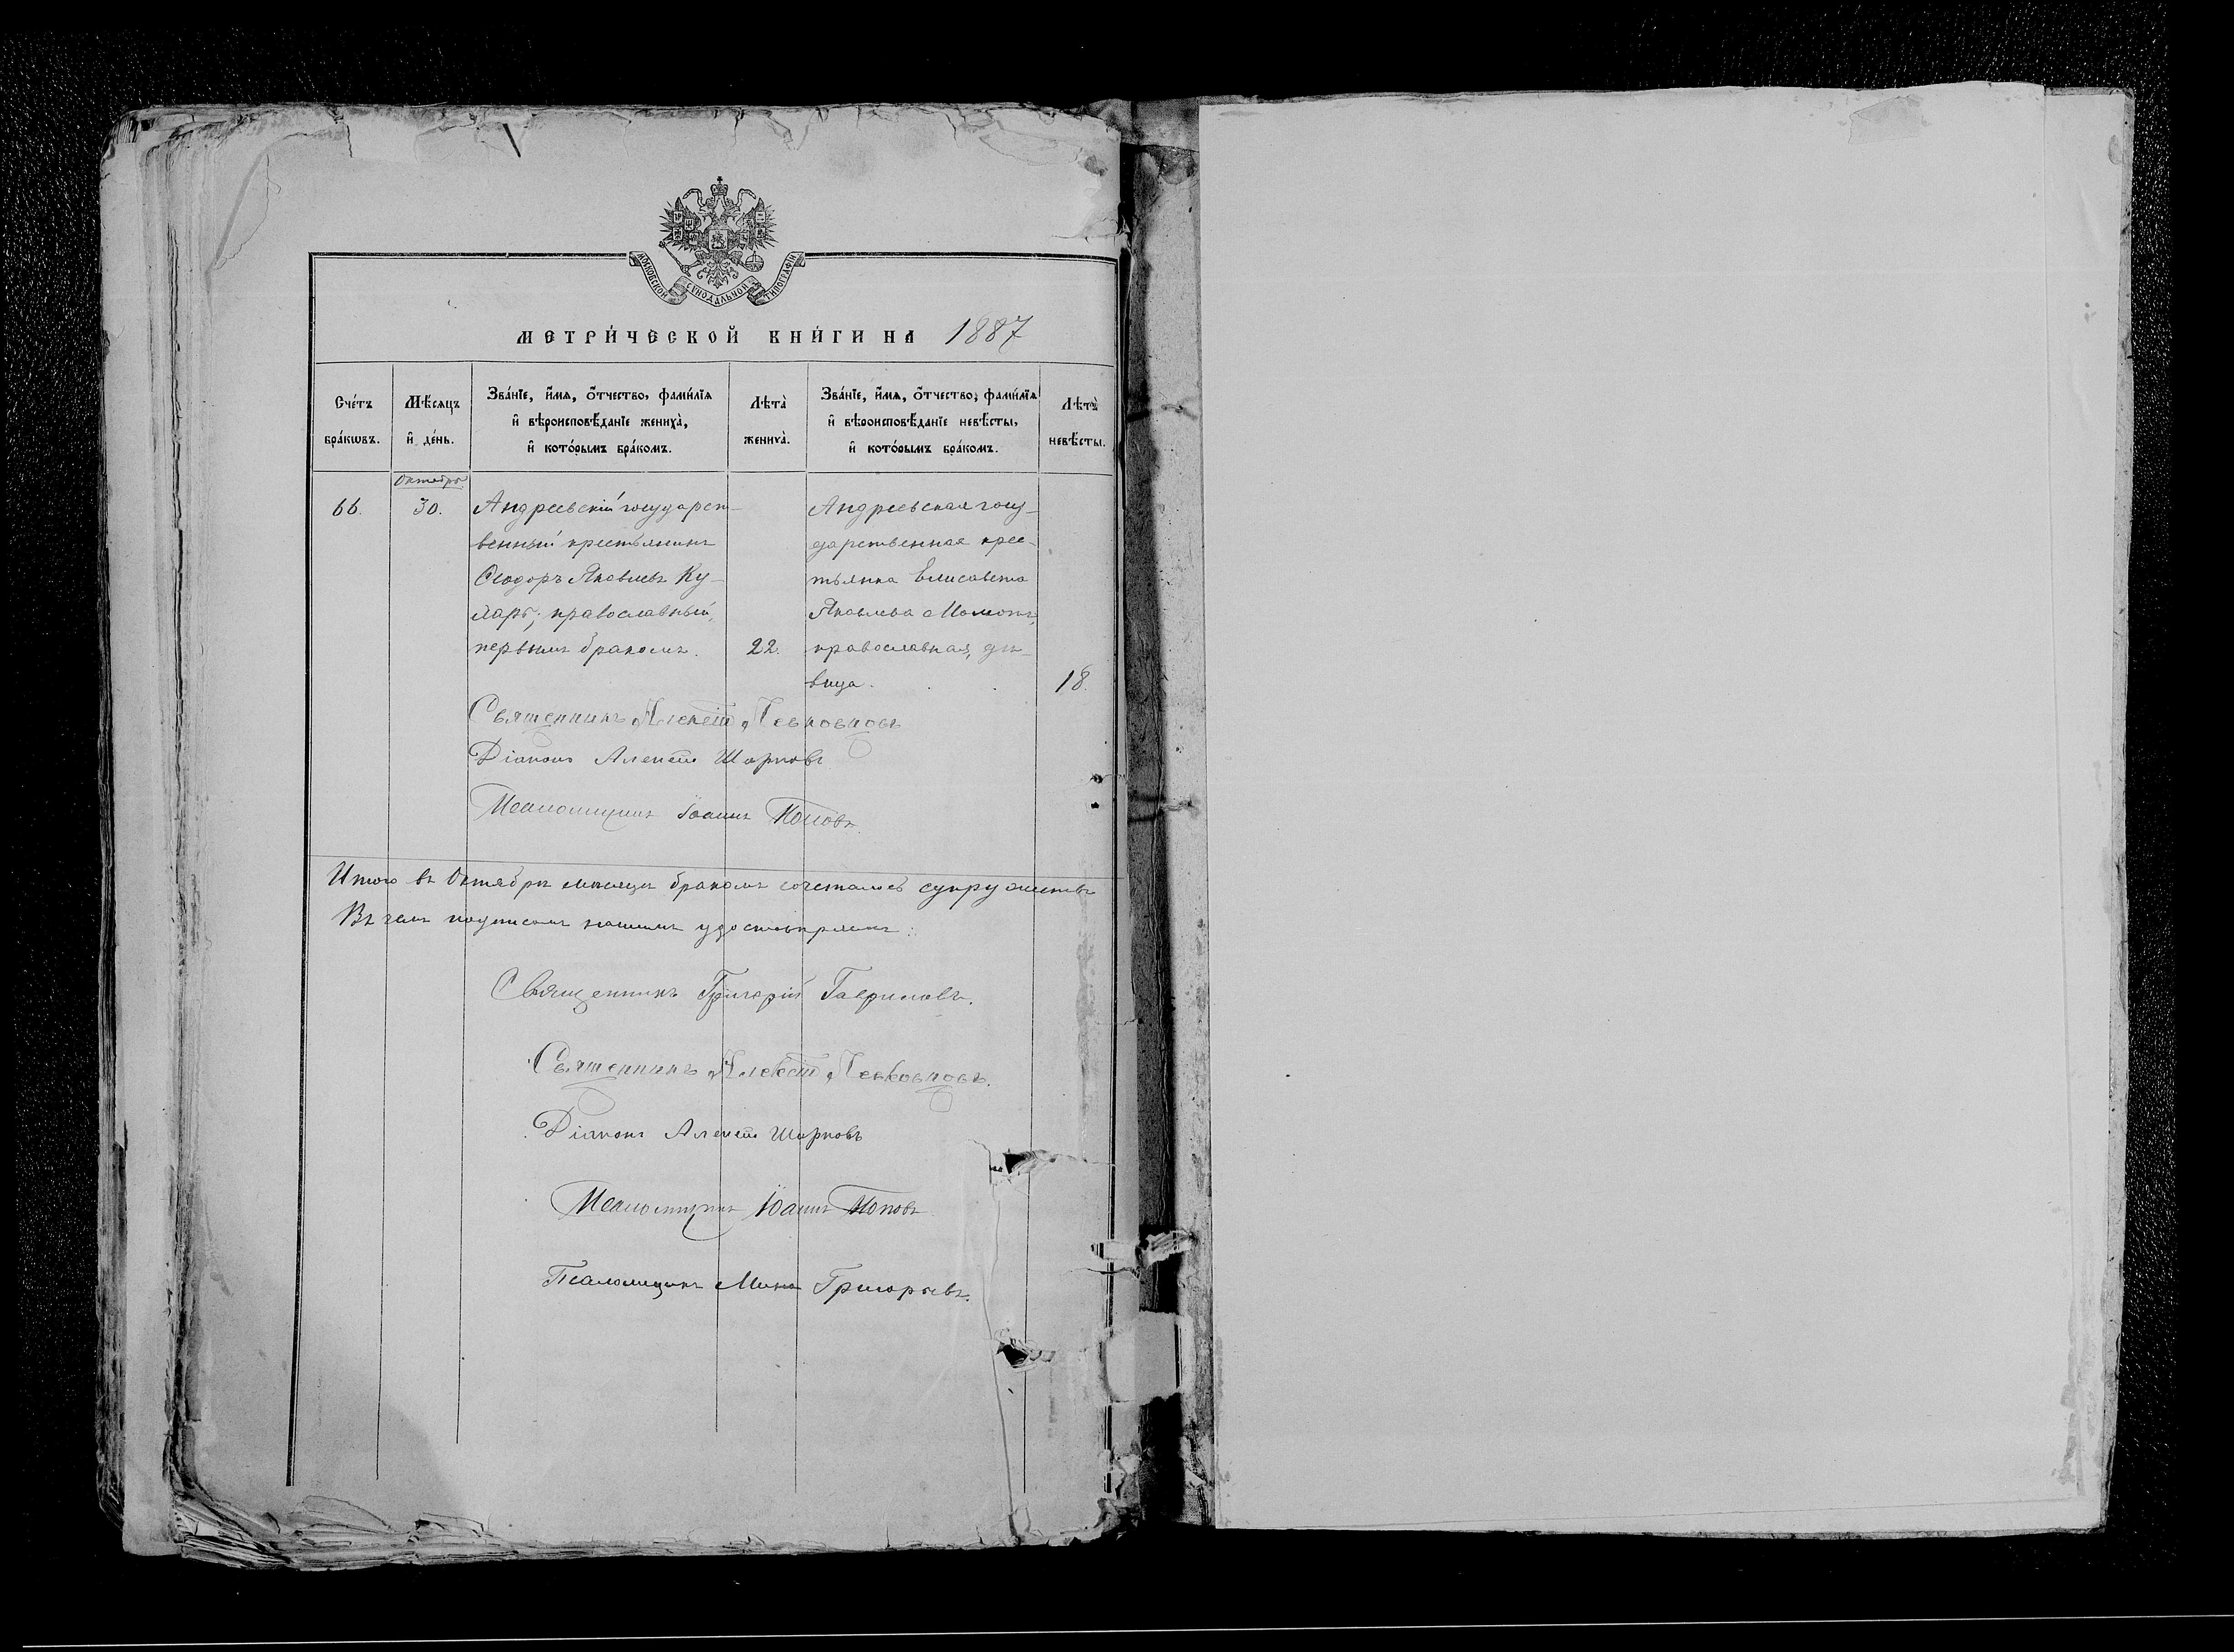 МОСКОВСКОЙ СѴНОДАЛЬНОЙ ТИПОГРАФІИ
МЕТРИ́ЧЕСКОЙ КНИ́ГИ НА 1887
Сче́тъ бра́кѡвъ.
Мѣ́сяцъ и҆ де́нь.
Зва́нїе, и҆́мѧ, ѻ҆́тчество, фами́лїѧ и҆ вѣроисповѣ́данїе жениха̀, и҆ кото́рымъ бра́комъ.
Лѣта̀ жениха̀.
Зва́нїе, и҆́мѧ, ѻ҆́тчество, фами́лїѧ и҆ вѣроисповѣ́данїе невѣ́сты, и҆ кото́рымъ бра́комъ.
Лѣта̀ невѣ́сты.
Октября
66. 30.
Андреевскій государст-
венный крестьянинъ
Ѳеодоръ Яковлевъ Ку-
ларъ; православный,
первымъ бракомъ.
22.
Андреевская госу-
дарственная крес-
тьянка Елисавета
Яковлева
православная, дѣ-
вица.
18.
Священникъ Алексій Левковковъ
Діаконъ Алексій Шарковъ
Псаломщикъ Іоаннъ Поповъ.
Итого въ Октябрѣ мѣсяцѣ бракомъ сочеталось супружествъ
Въ чемъ подписомъ нашимъ удостовѣряемъ:
Священникъ Григорій Гавриловъ.
Священникъ Алексій Левковковъ.
Діаконъ Алексій Шарковъ
Псаломщикъ Іоаннъ Поповъ
Псаломщикъ Мина Григорьевъ.